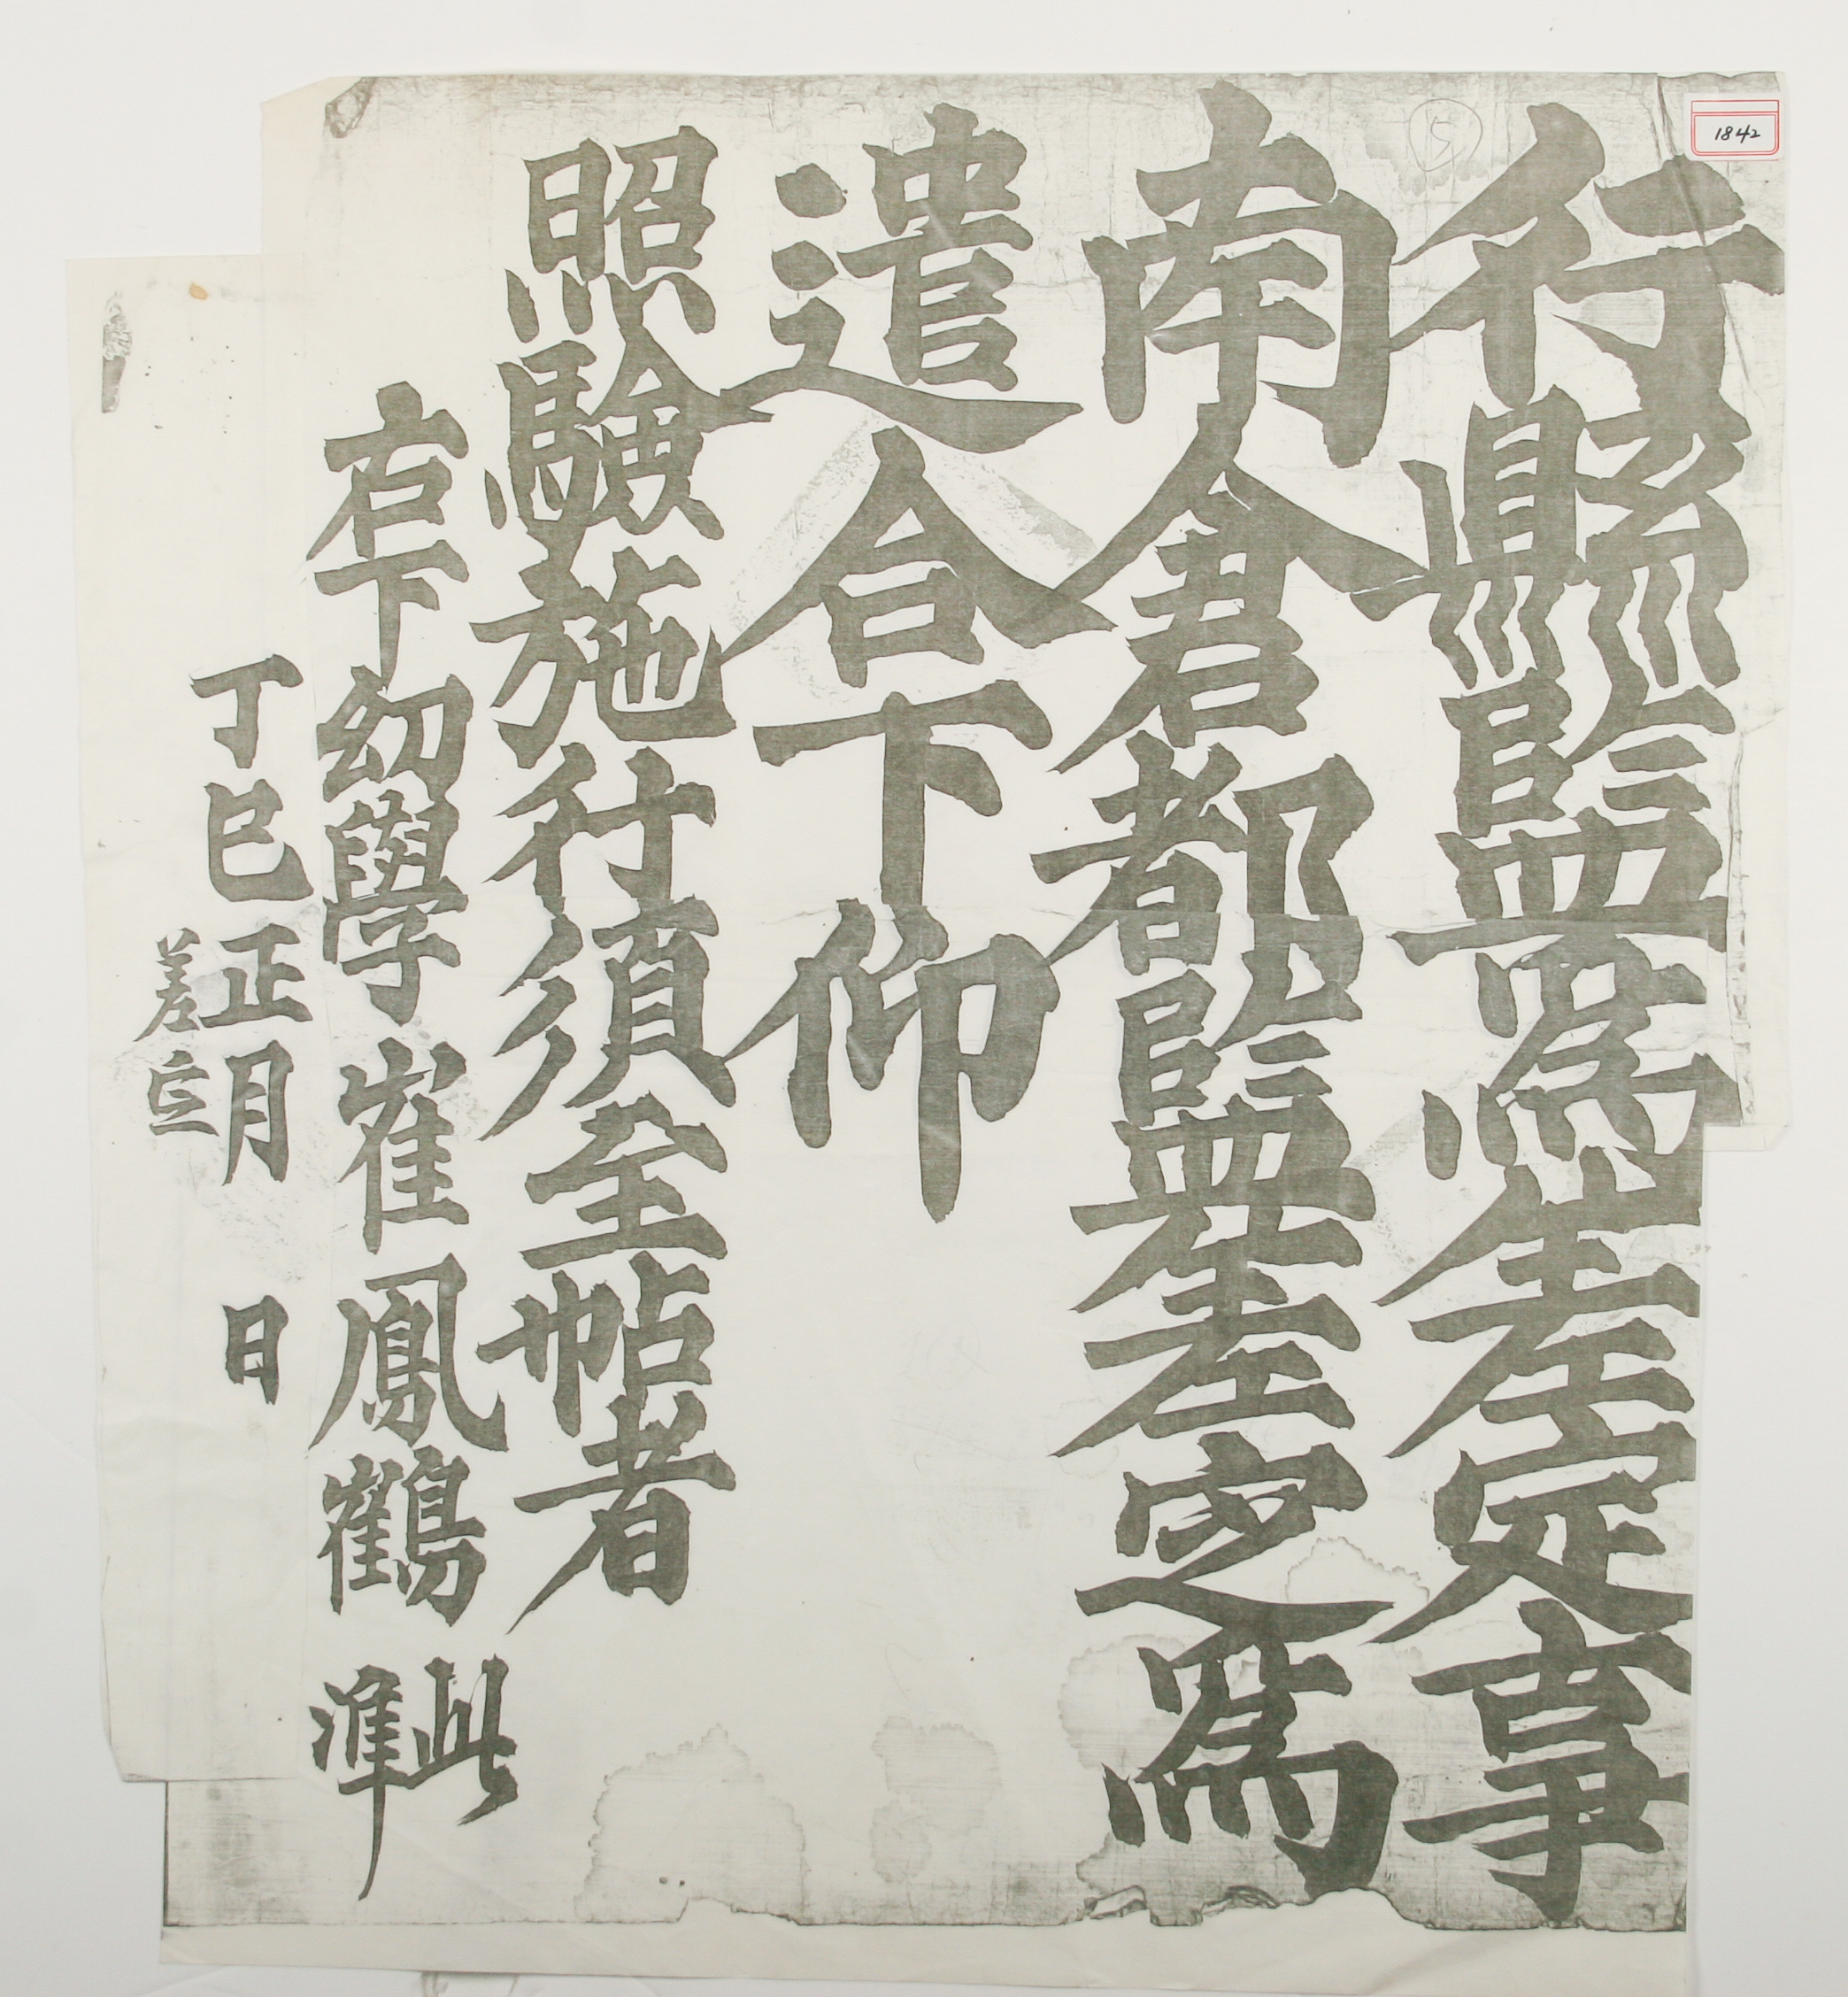 行縣監爲差定事
南倉君都監差定爲
遣合下仰
照驗施行須至帖者
右下幼學崔鳳鶴 準此
丁巳正月 日
差
15
1842